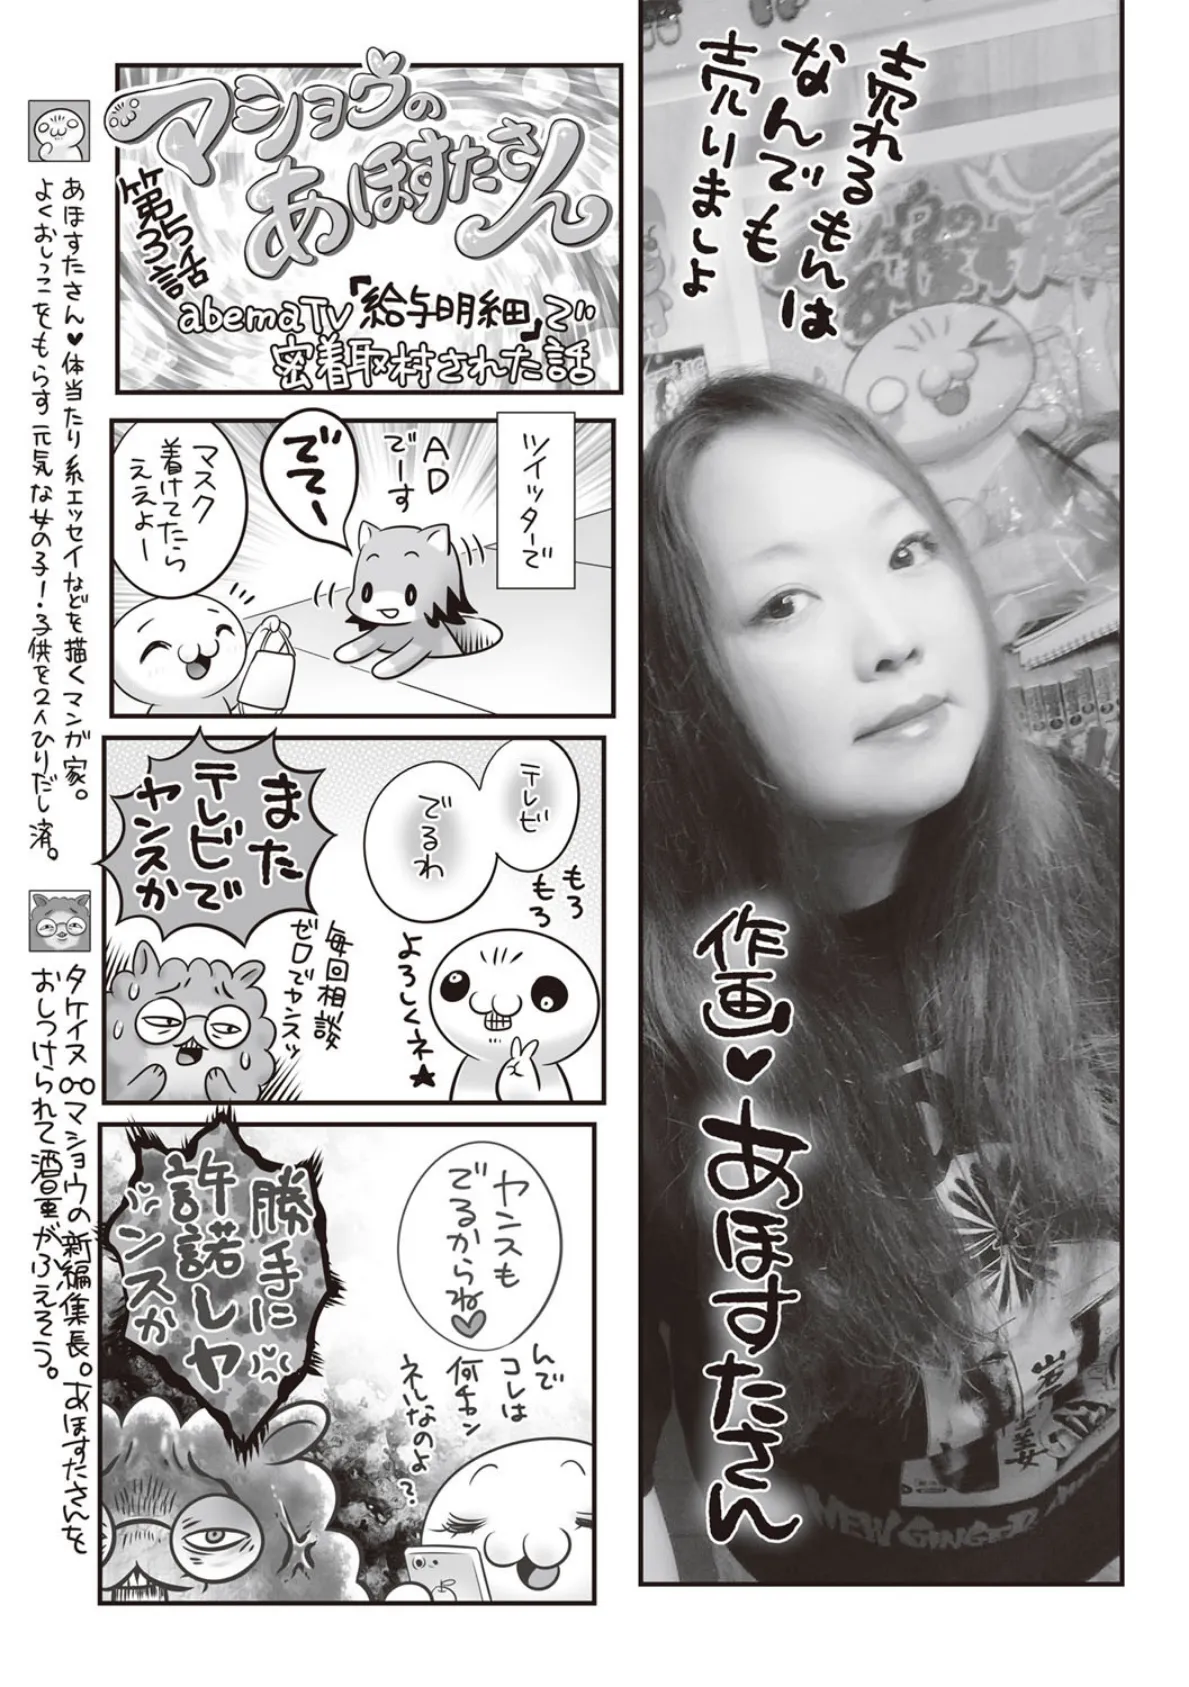 売れるもんは
なんでも
売りましょ
作画♥あほすたさん
マショウの
あほすたさん
第53話
abemaTV「給与明細」で
密着取材された話
ツイッターで
ADでーす
ででー
マスク
着けてたら
ええよー
テレビ
でるわ
もろもろ
よろしくネ★
また
テレビで
ヤンスか
毎回相談
ゼロでヤンスッ
ヤンスも
でるからね♡
んで
コレは
何チャン
ネルなのよ?
勝手に
許諾しヤ
ンスか
あほすたさん♥体当たり系エッセイなどを描くマンガ家。
よくおしっこをもらす元気な女の子!・子供を2人ひりだし済。
タケイヌ マショウの新編集長。あほすたさんを
おしつけられて酒量がふえそう。
NEW GINGER
岩
姜